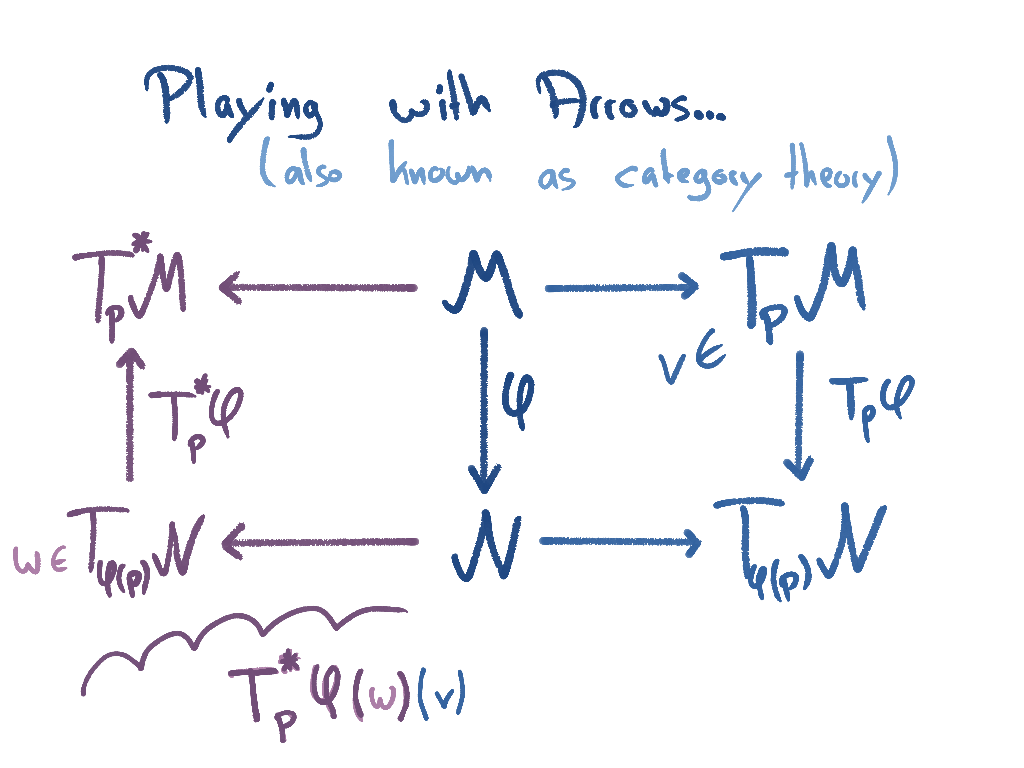 Playing with Arrows...
(also known as category theory)
T*ₚM ← M → TₚM
v ∈
T*ₚφ φ Tₚφ
w ∈ T_φ(p)N ← N → T_φ(p)N
T*ₚφ(w)(v)